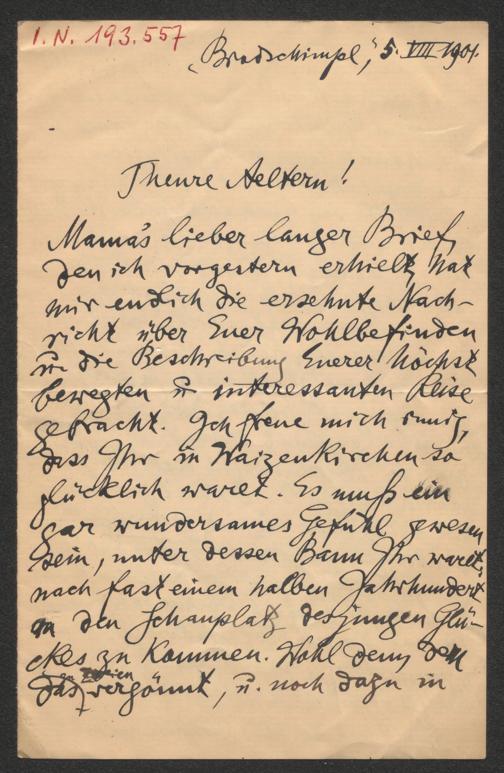 I.N. 193.557
„Bradschimpl", 5. VIII 1901.
Theure Aeltern!
Mama's lieber langer Brief,
den ich vorgestern erhielt, hat
mir endlich die ersehnte Nach-
richt über Euer Wohlbefinden
u. die Beschreibung Euerer höchst
bewegten u. interessanten Reise
gebracht. Ich freue mich innig,
dass Ihr in Waizenkirchen so
glücklich waret. Es muß ein
gar wundersames Gefühl gewesen
sein, unter dessen Bann Ihr waret,
nach fast einem halben Jahrhundert
an den Schauplatz des jungen Glü-
ckes zu kommen. Wohl dem, dem
das vergönnt, u. noch dazu in